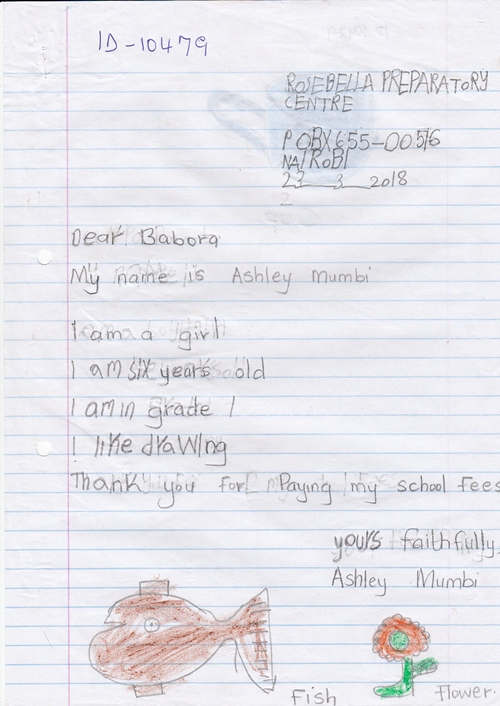 ID-10479
ROSEBELLA PREPARATORY
CENTRE
P OBX 655-00516
NAIROBI
23 3 2018
Dear Babora
My name is Ashley Mumbi
I am a girl
I am six years old
I am in grade 1
I like drawing
Thank you for Paying my school fees
yours faithfully,
Ashley Mumbi
Fish
flower.